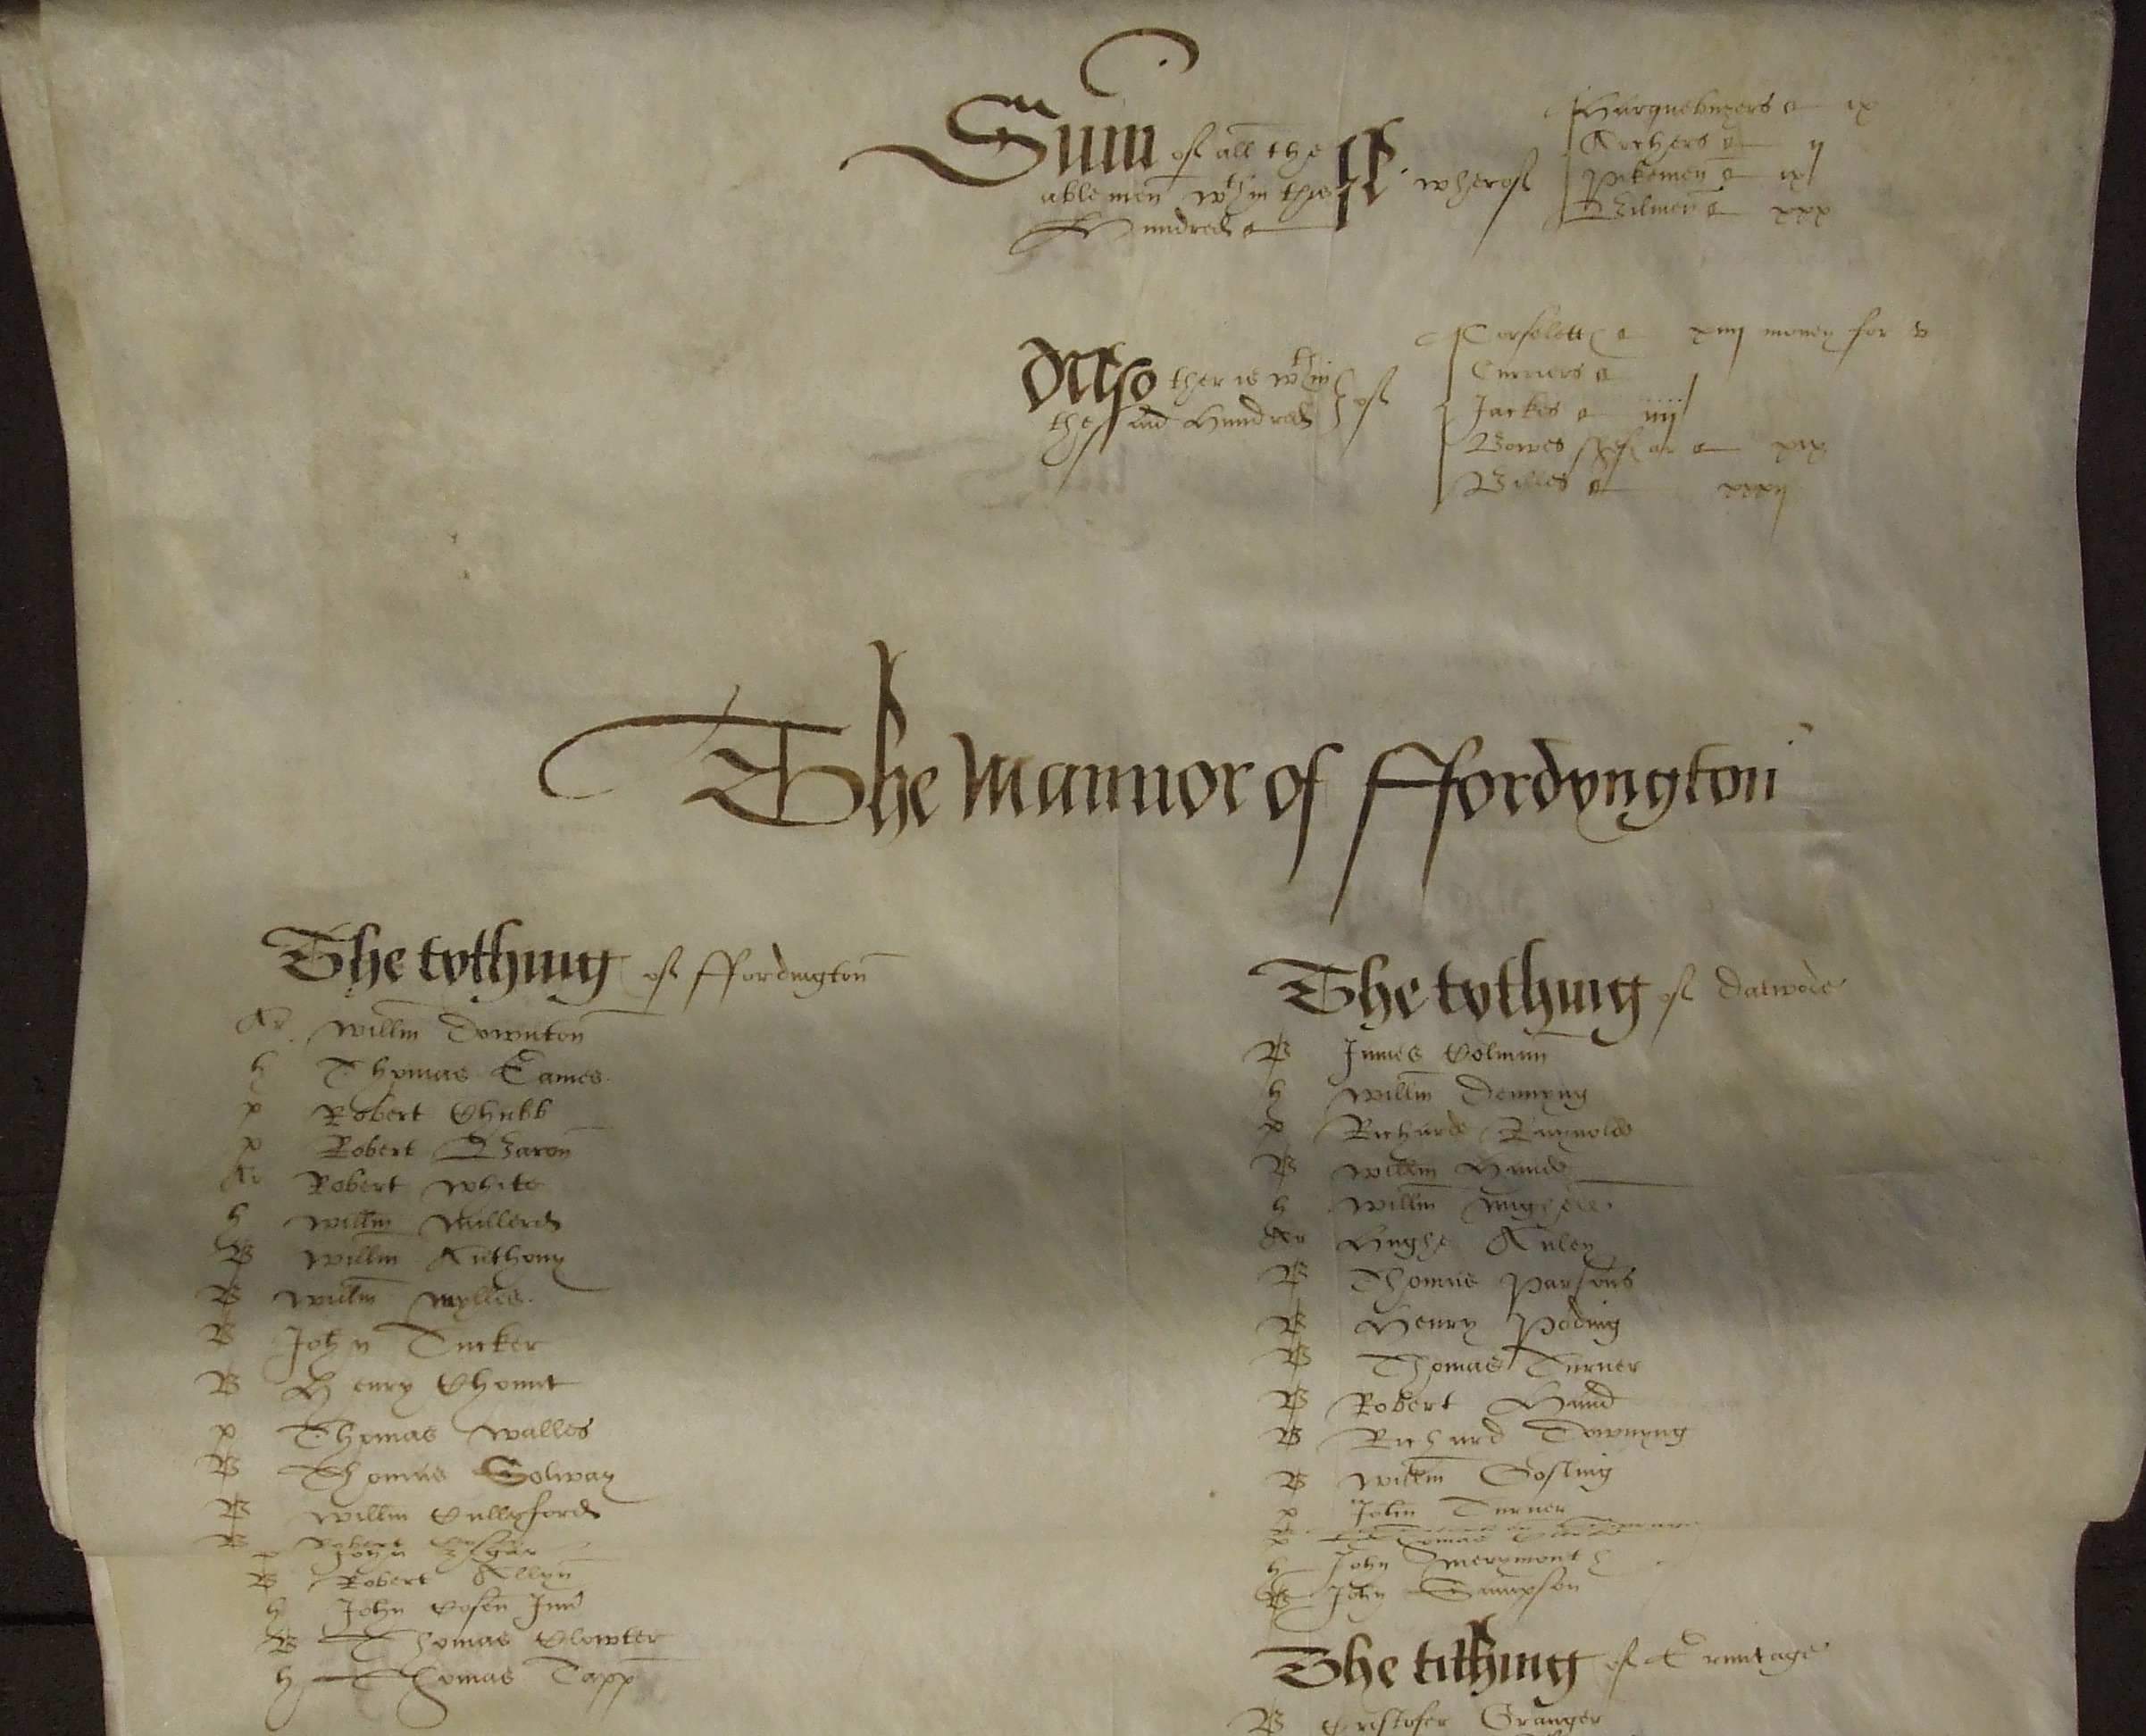 Sum of all the
able men wthin this
Hundred
wherof
Harquebuzers ix
Archers ij
Pikemen ix
Bilmen xxx
Also ther is wthin
the said Hundred
of
Corselett xiiij money for v
Curriers
Jackes iiij
Bowes shef ar xix
Billes xxxij
The Mannor of ffordyngton
The tythyng of ffordington
Ar Willm Downton
h Thomas Eames
p Robert Chubb
p Robert Baron
Ar Robert White
h Willm Millerd
B Willm Anthony
B Willm Mylles
B John Tucker
B Henry Chount
p Thomas Walles
B Thomas Solway
B Willm Cullyford
B Robert
B Robert Allyn
h John Cosen Jun
B Thomas Clowter
h Thomas Tapp
The tythyng of Datwode
B James Colman
h Willm Dennyng
p Richarde Raynolds
B Willm Hande
h Willm Mighell
Ar Hughe Auley
B Thomas Parsons
B Henry Poding
B Thomas Turner
B Robert Hand
B Richard Downyng
B Willm Gosling
p John Turner
p Thomas
h John Merymonth
B John Sampson
The tithing of Ermitage
B Cristofer Granger